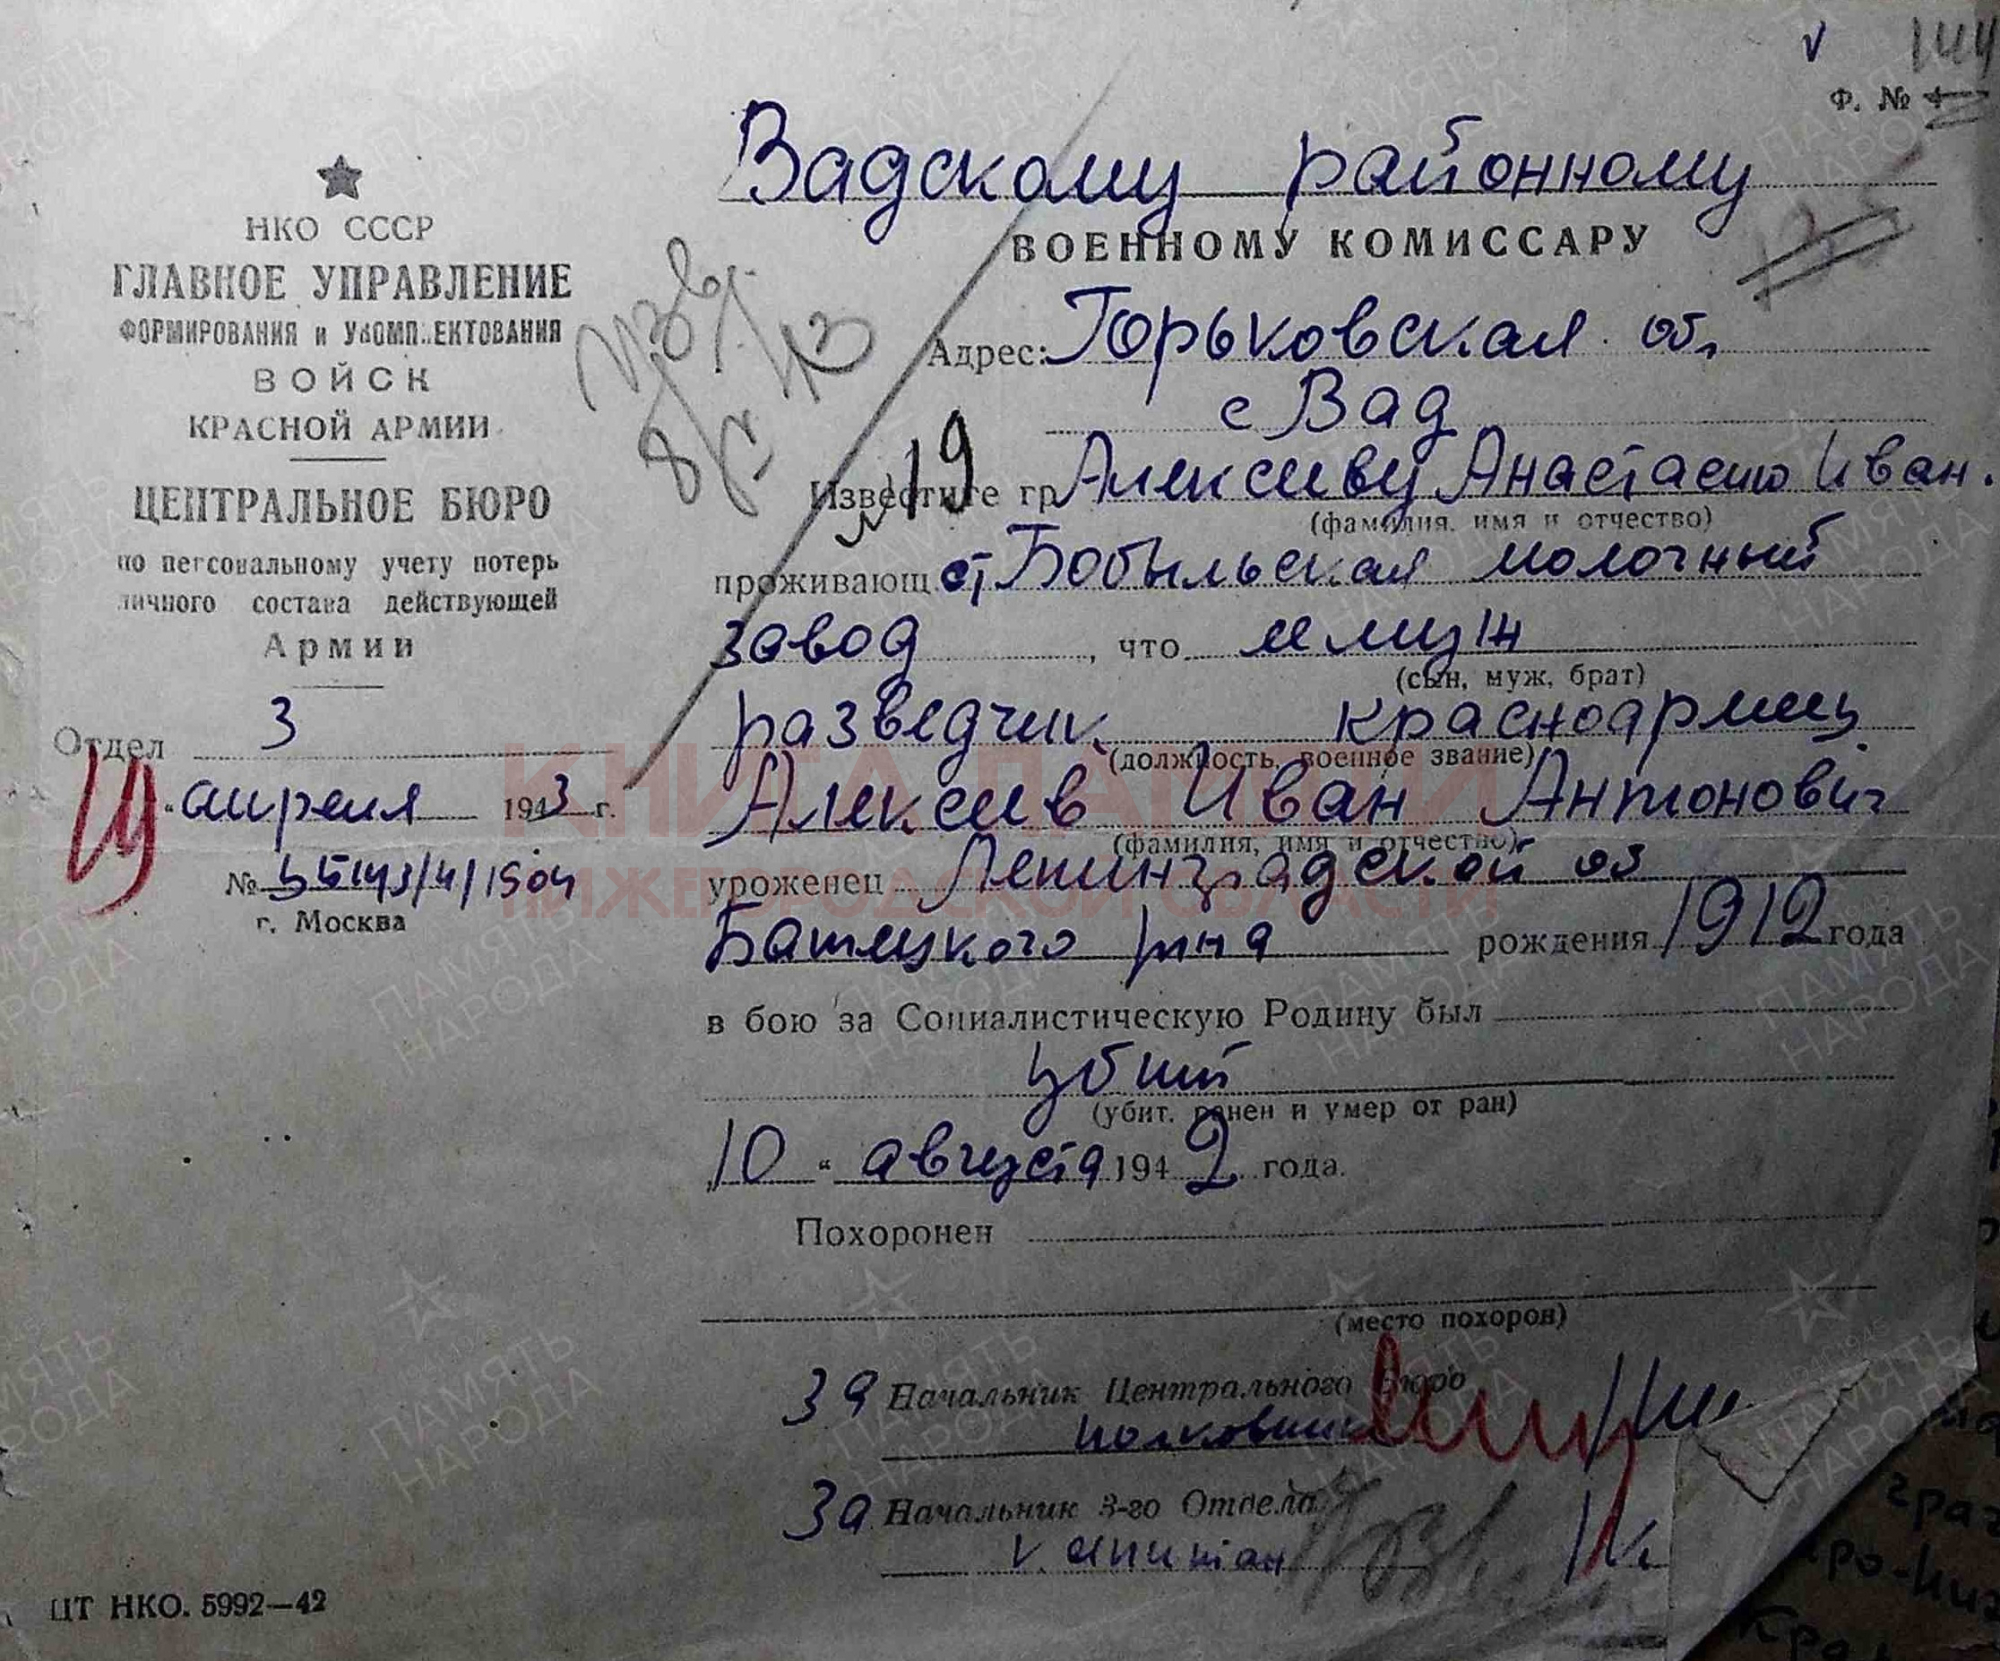 Ф. №
НКО СССР
ГЛАВНОЕ УПРАВЛЕНИЕ
ФОРМИРОВАНИЯ и УКОМПЛЕКТОВАНИЯ
ВОЙСК
КРАСНОЙ АРМИИ
ЦЕНТРАЛЬНОЕ БЮРО
по персональному учету потерь
личного состава действующей
Армии
Отдел 3
апреля 1943 г.
№
г. Москва
Вадскому районному
ВОЕННОМУ КОМИССАРУ
Адрес: Горьковская об
с Вад
19
Известите гр Алексееву Анастасию Иван.
(фамилия, имя и отчество)
проживающ ст Бобыльская молочный
завод, что ее муж
(сын, муж, брат)
разведчик красноармеец
(должность, военное звание)
Алексеев Иван Антонович
(фамилия, имя и отчество)
уроженец Ленинградской об
рна рождения 1912 года
в бою за Социалистическую Родину был
убит
(убит, ранен и умер от ран)
„10“ августа 1942 года.
Похоронен
(место похорон)
За Начальник Центрального Бюро
полковник
За Начальник 3-го Отдела
капитан
ЦТ НКО. 5992—42
КНИГА ПАМЯТИ
НИЖЕГОРОДСКОЙ ОБЛАСТИ
ПАМЯТЬ НАРОДА